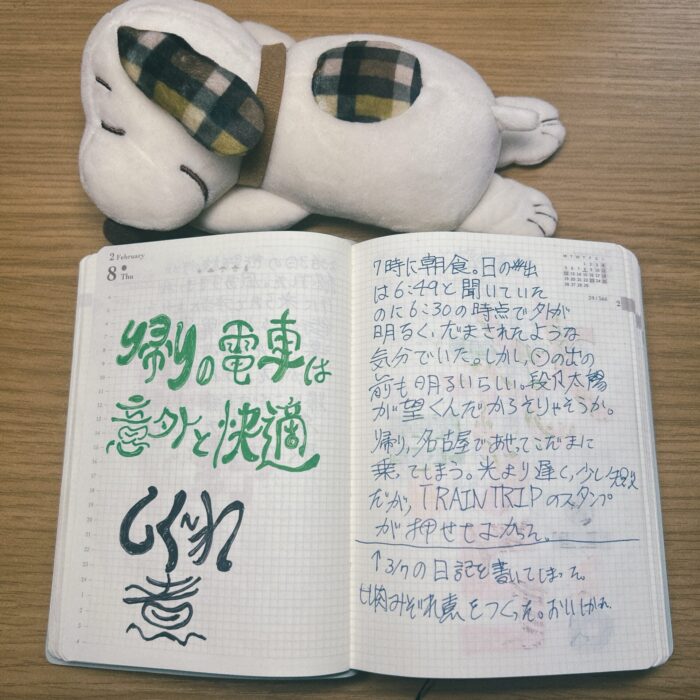 2 February
8
Thu
帰りの電車は
意外と快適
しぐれ
煮
7時に朝食。日の出
は6:49と聞いていた
のに6:30の時点で外が
明るく、だまされたような
気分でいた。しかし、の出の
前も明るいらしい。太陽
が望くんだからそりゃそうか。
帰り、名古屋であせってこだまに
乗ってしまう。光より遅く、少し
だが、TRAIN TRIPのスタンプ
が押せてよかった。
↑3/7の日記を書いてしまった。
肉みぞれ煮をつくった。おいしかった。
2